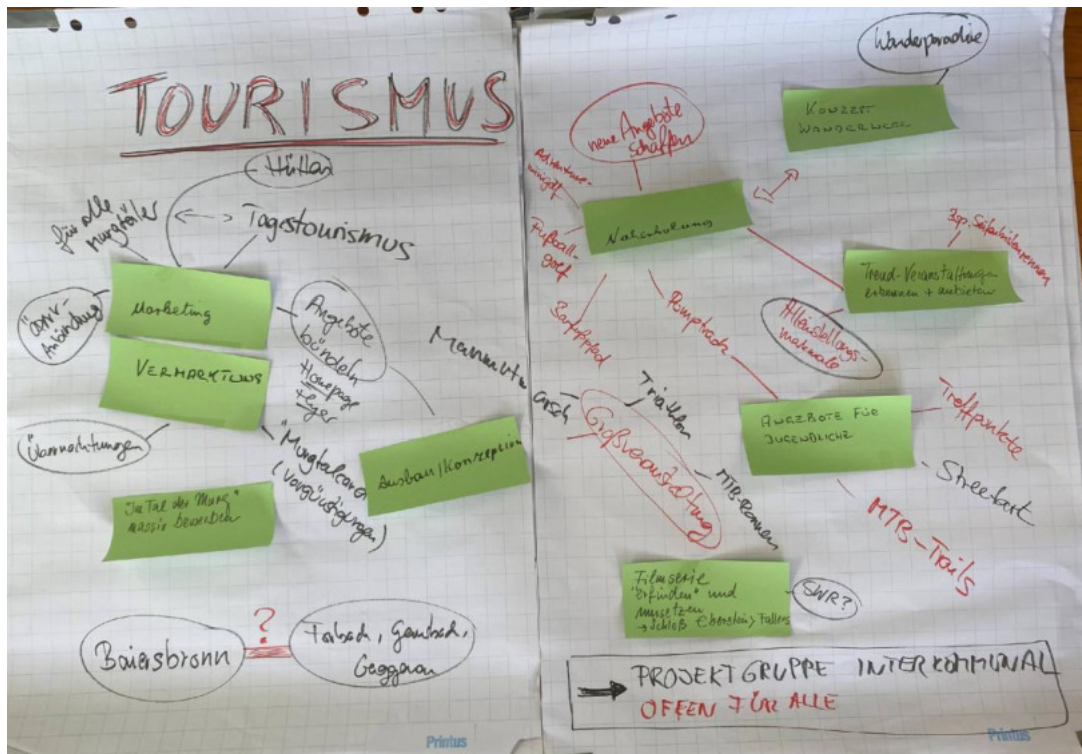 TOURISMUS
Hütten
für alle
Murgtäler
Tagestourismus
ÖPNV-
Anbindung
Marketing
VERMARKTUNG
Angebote
bündeln
Homepage
Flyer
Übernachtungen
"Murgtalcard"
(Vergünstigungen)
Ausbau/Konzeption
"Im Tal der Murg"
massiv bewerben
?
Baiersbronn
Forbach, Gernsbach,
Gaggenau
Printus
Wanderparadise
KONZEPT
WANDERWEGE
neue Angebote
schaffen
Adventure-
minigolf
Naherholung
Fußball-
golf
Barfußpfad
Pumptrack
zsp. Seifenkistenrennen
Trend-Veranstaltungen
erkennen + anbieten
Alleinstellungs-
merkmale
Mammut-
marsch
Triathlon
Großveranstaltung
MTB-Rennen
ANGEBOTE FÜR
JUGENDLICHE
Treffpunkte
Streetart
MTB-Trails
Filmserie
"erfinden" und
umsetzen
→ Schloß Eberstein > Fallers
SWR?
→ PROJEKTGRUPPE INTERKOMMUNAL
OFFEN FÜR ALLE
Printus